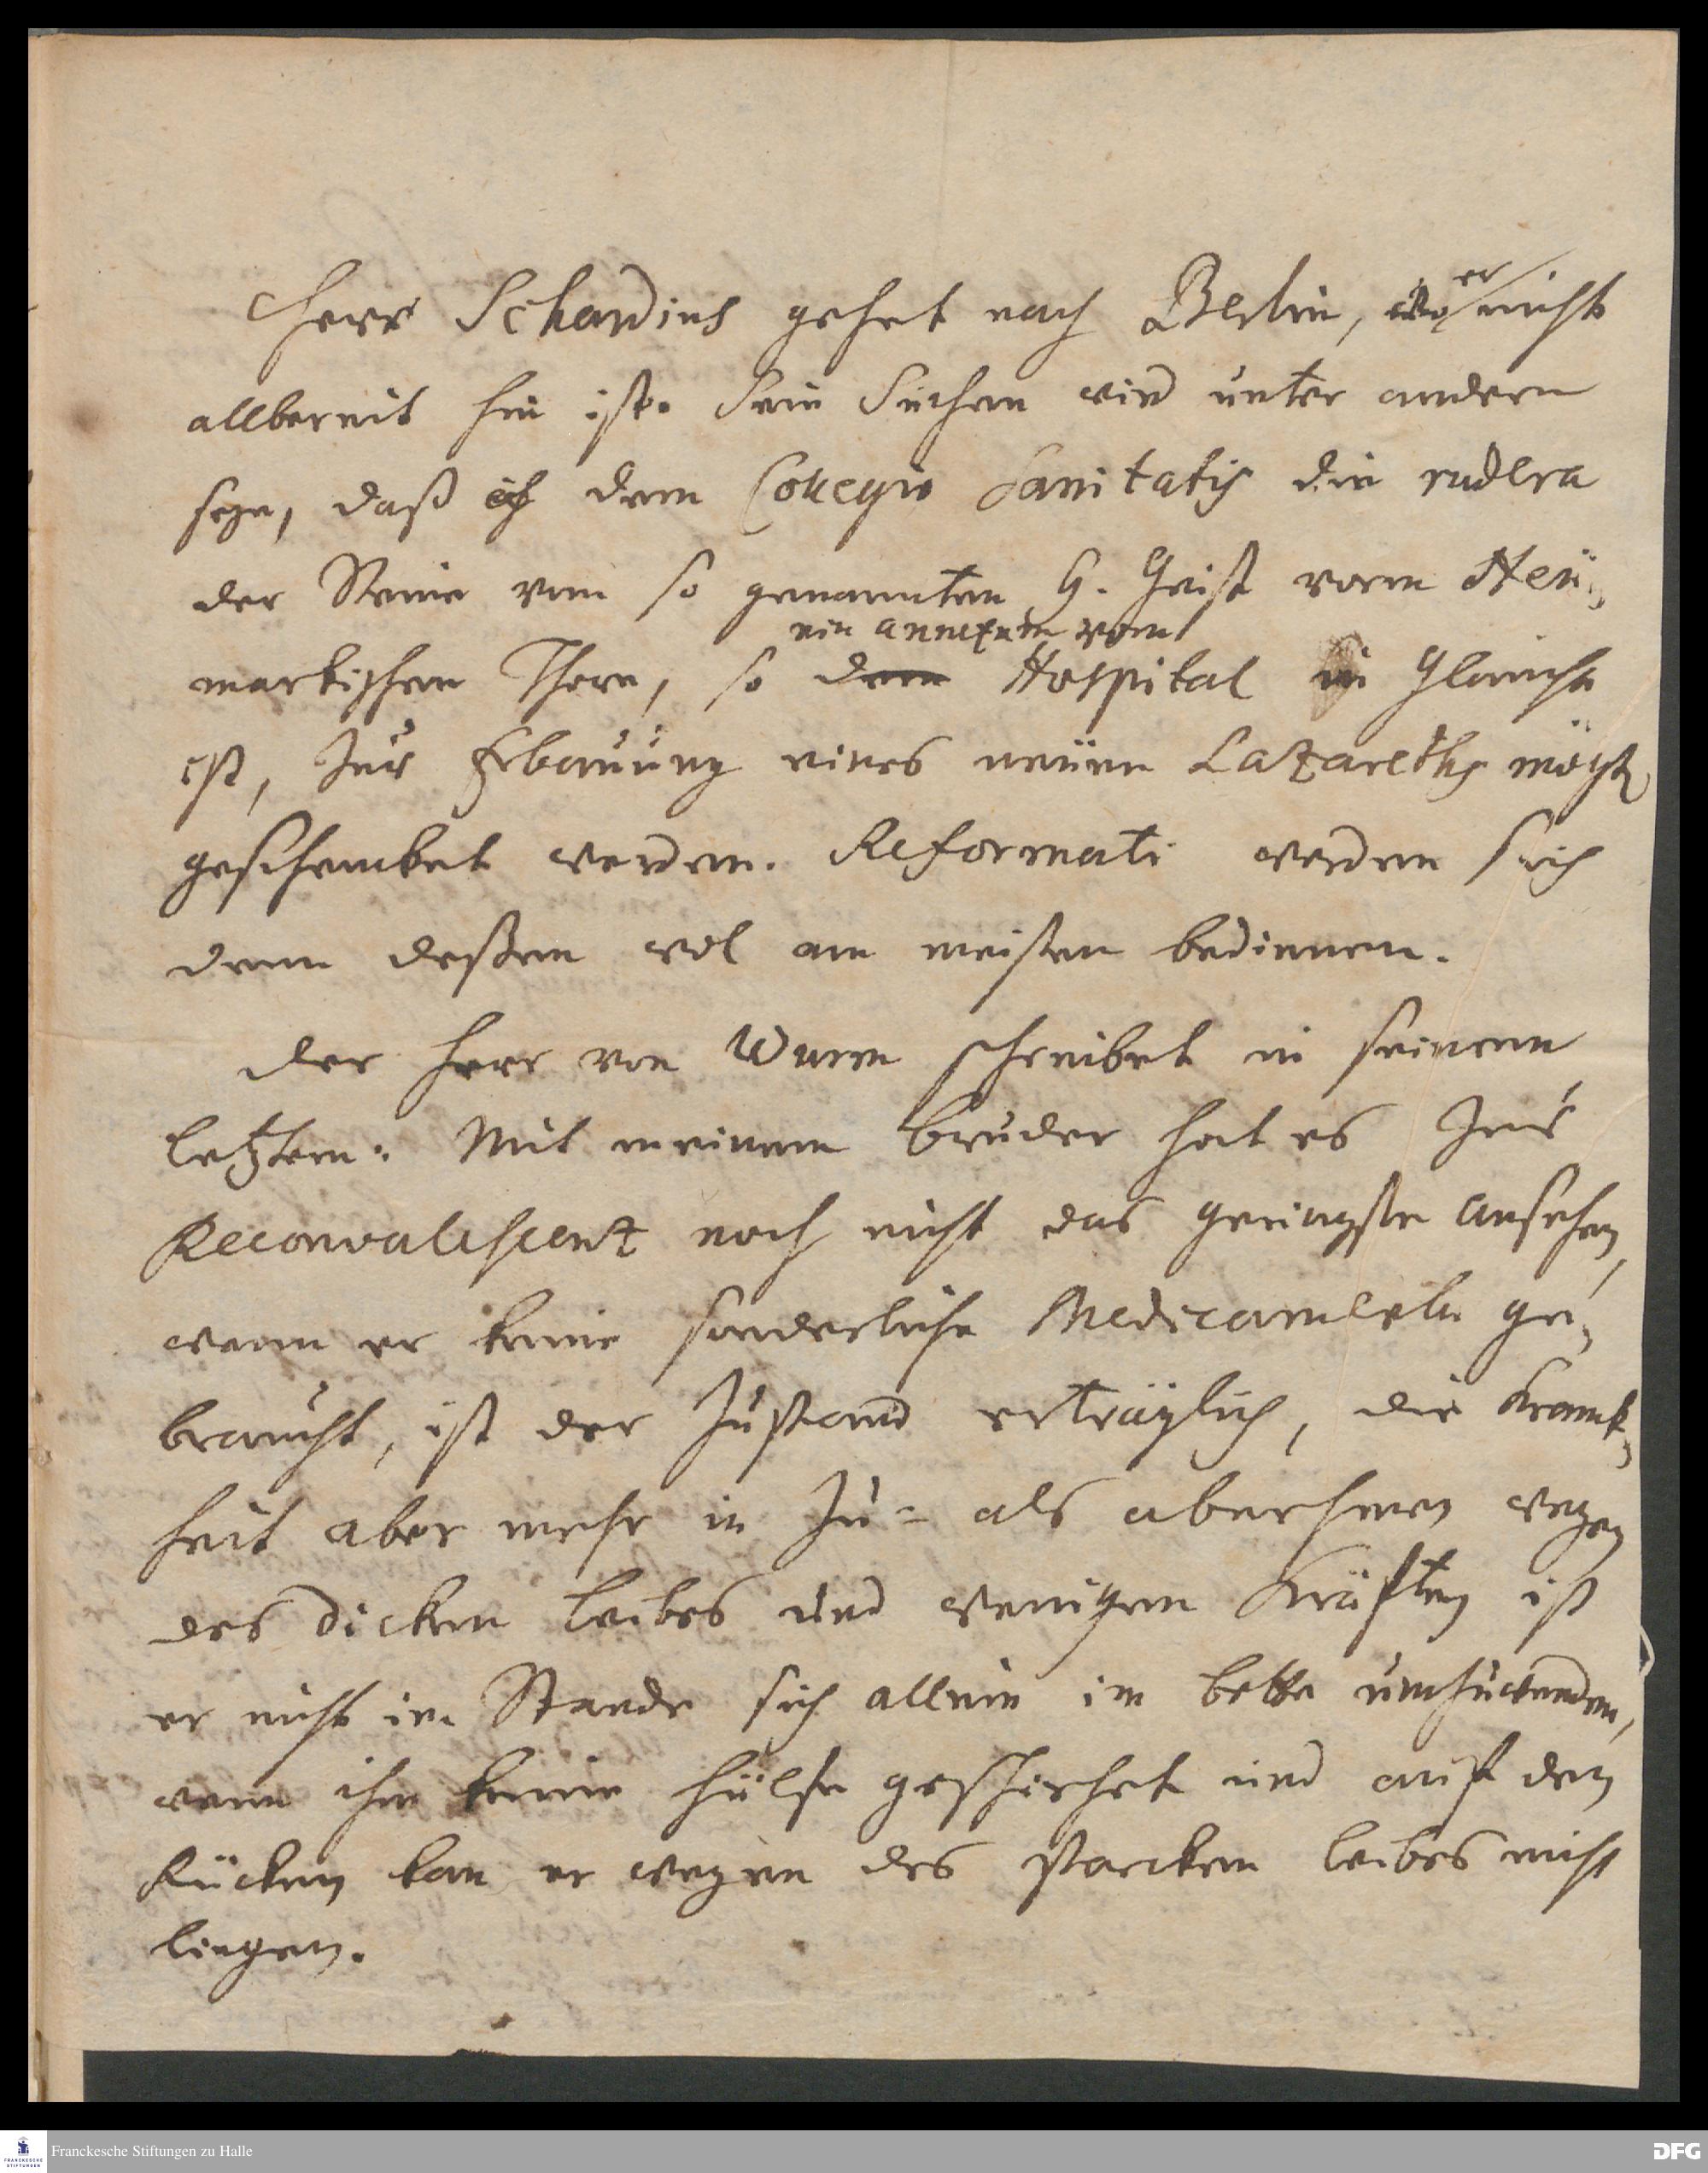 Herr Schardius gehet nach Berlin, wo er nicht
allbereit hin ist. Sein Suchen wird unter andern
seyn, daß dem Collegio Sanitatis die rudera
der Steine vom so genannten H. Geist vorm Neu-
ein annexum vom
markischen Thore, so dem Hospital in Glaucha
ist, zur Erbauung eines neüen Lazareths möchte
geschencket werden. Reformati werden sich
denn deßen wol am meisten bedienen.
Der Herr von Wurm schreibet in seinem
letztern: Mit meinem Bruder hat es zur
Reconvalescent noch nicht das geringste ansehen,
wenn er keine sonderliche Medicamente ge-
braucht, ist der Zustand erträglich, die Kranck-
heit aber mehr in Zu- als abnehmen wegen
des dicken Leibes und wenigen Kräfften ist
er nicht im Stande sich allein im bette umzuwenden,
wenn ihm keine hülfe geschiehet und auf dem
Rücken kan er wegen des starcken leibes nicht
liegen.
Franckesche Stiftungen zu Halle
FRANCKESCHE
STIFTUNGEN
DFG